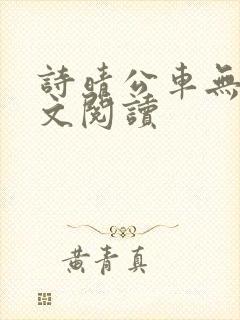 詩晴公車無
文閱讀
黃青真